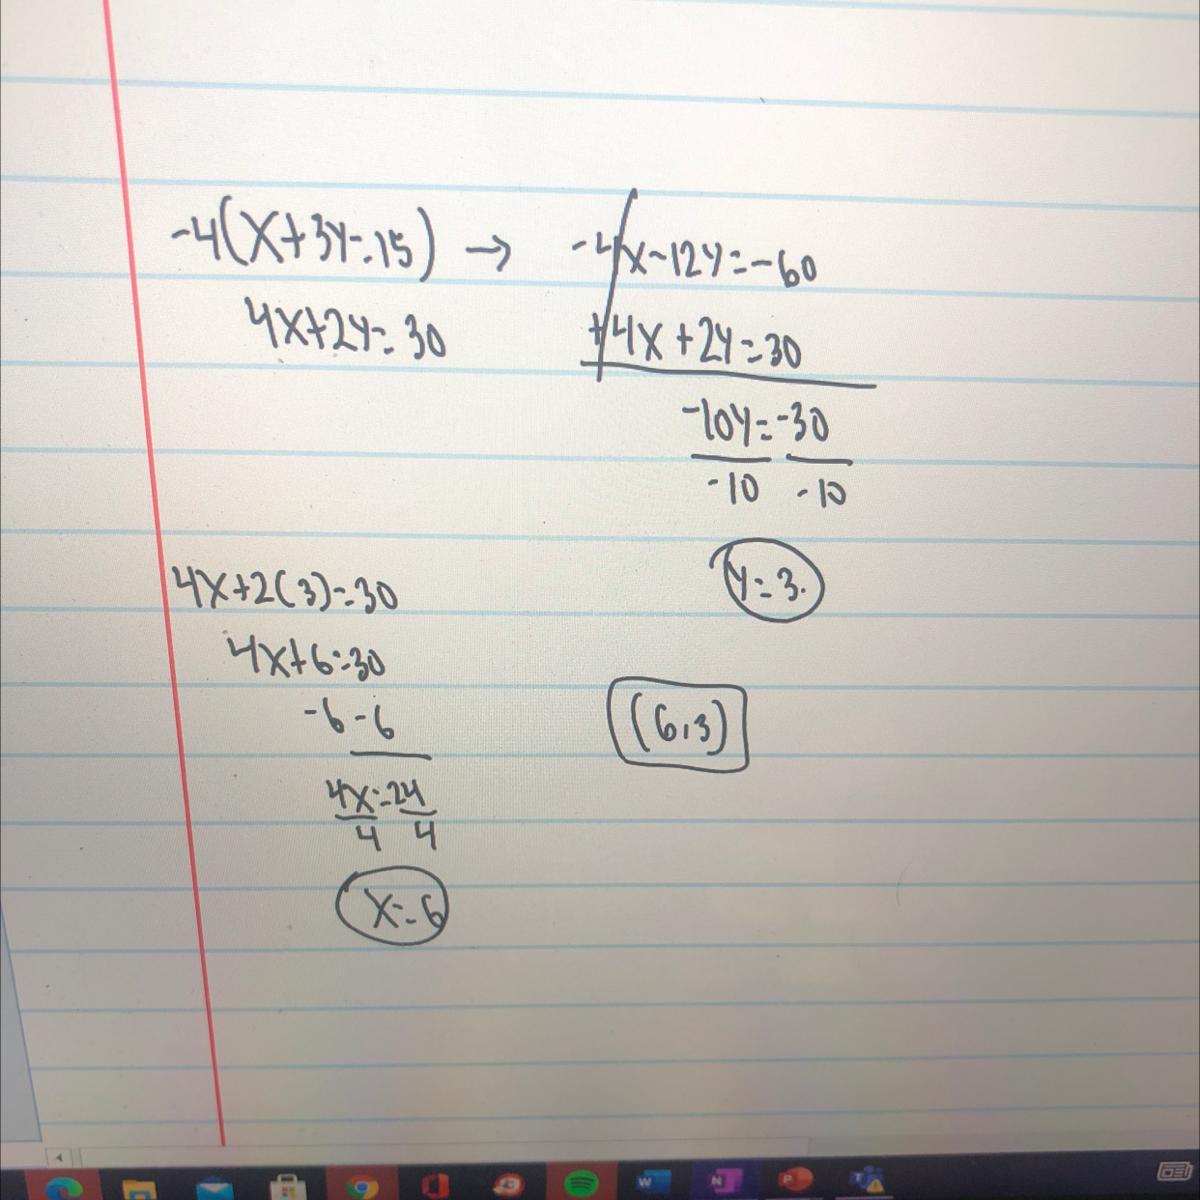 -4(x+3y=15) → -4x-12y=-60
4x+2y=30 +4x+2y=30
-10y=-30
-10 -10
y=3.
4x+2(3)=30
4x+6=30
-6-6
(6,3)
4x=24
4 4
x=6